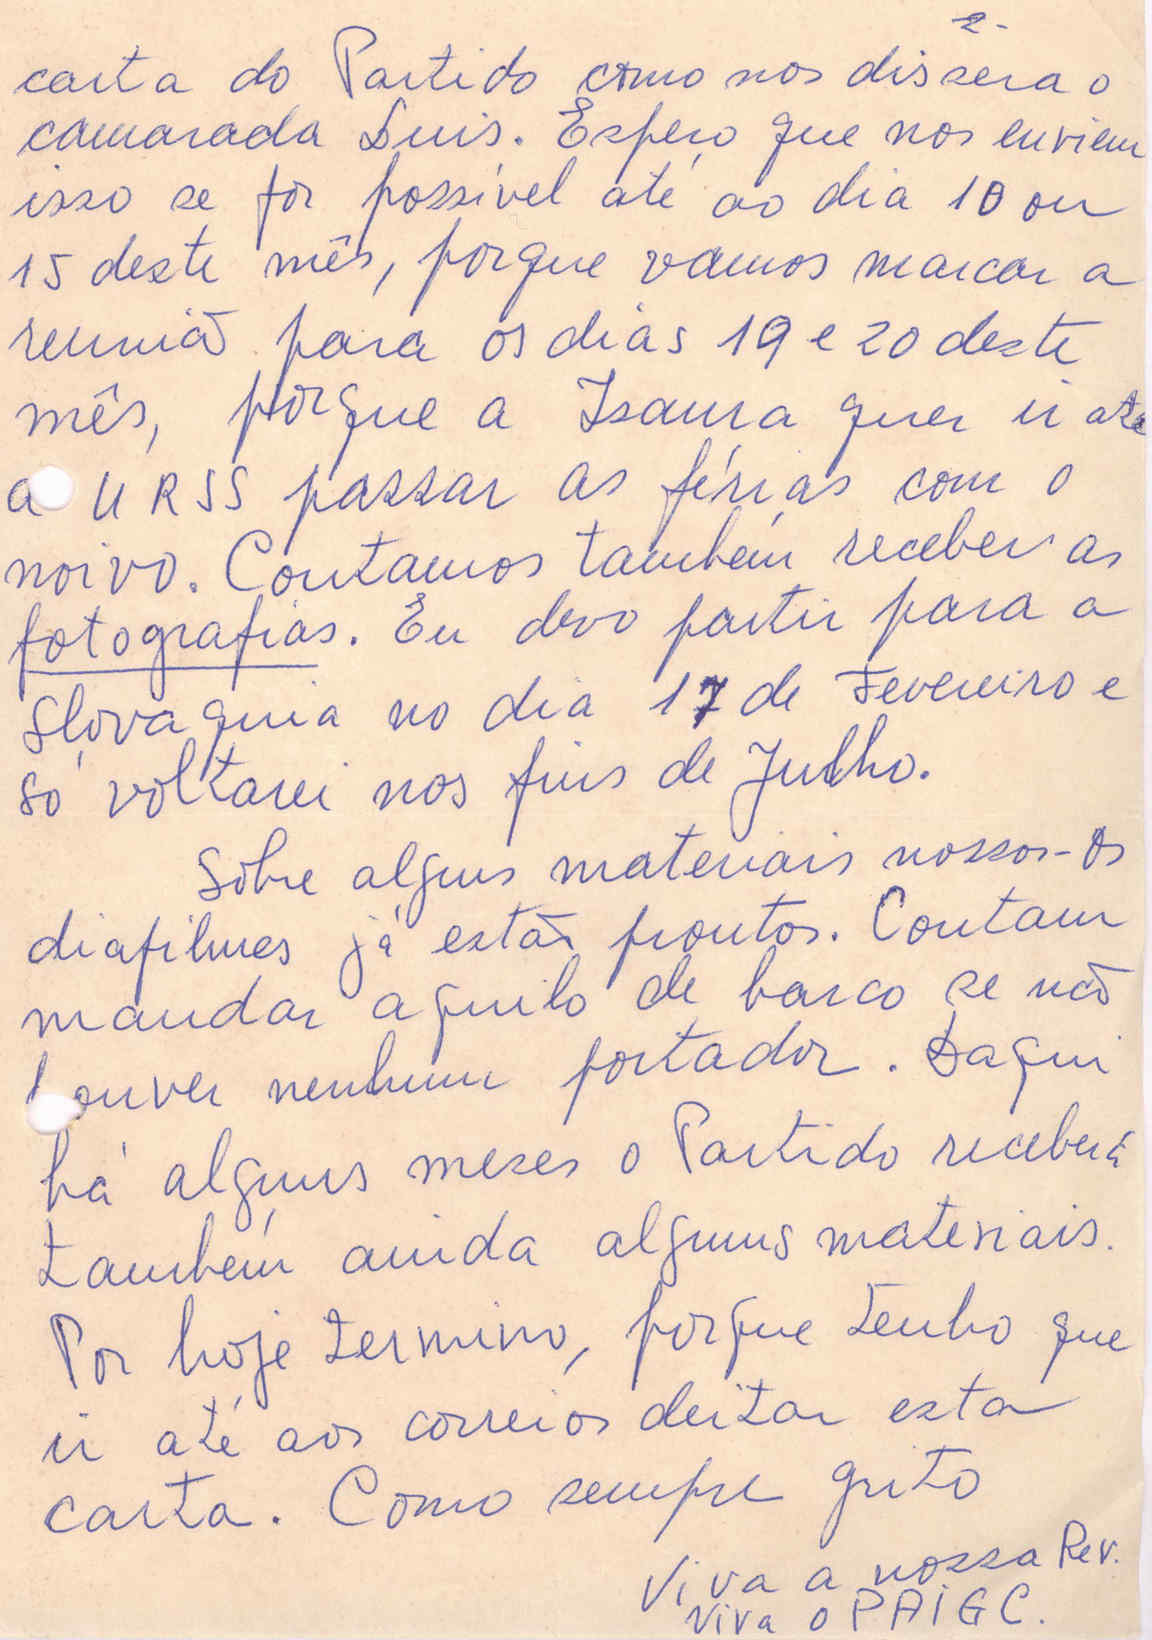 -2-
carta do Partido como nos dissera o
camarada Luis. Espero que nos enviem
isso se for possível até ao dia 10 ou
15 deste mês, porque vamos marcar a
reunião para os dias 19 e 20 deste
mês, porque a Isaura quer ir até
a URSS passar as férias com o
noivo. Contamos também receber as
fotografias. Eu devo partir para a
Slovaquia no dia 17 de Fevereiro e
só voltarei nos fins de Julho.
Sobre alguns materiais nossos - Os
diafilmes já estão prontos. Contam
mandar aquilo de barco se não
houver nenhum portador. Daqui
há alguns meses o Partido receberá
também ainda alguns materiais.
Por hoje termino, porque tenho que
ir até aos correios deitar esta
carta. Como sempre grito
Viva a nossa Rev.
Viva o PAIGC.